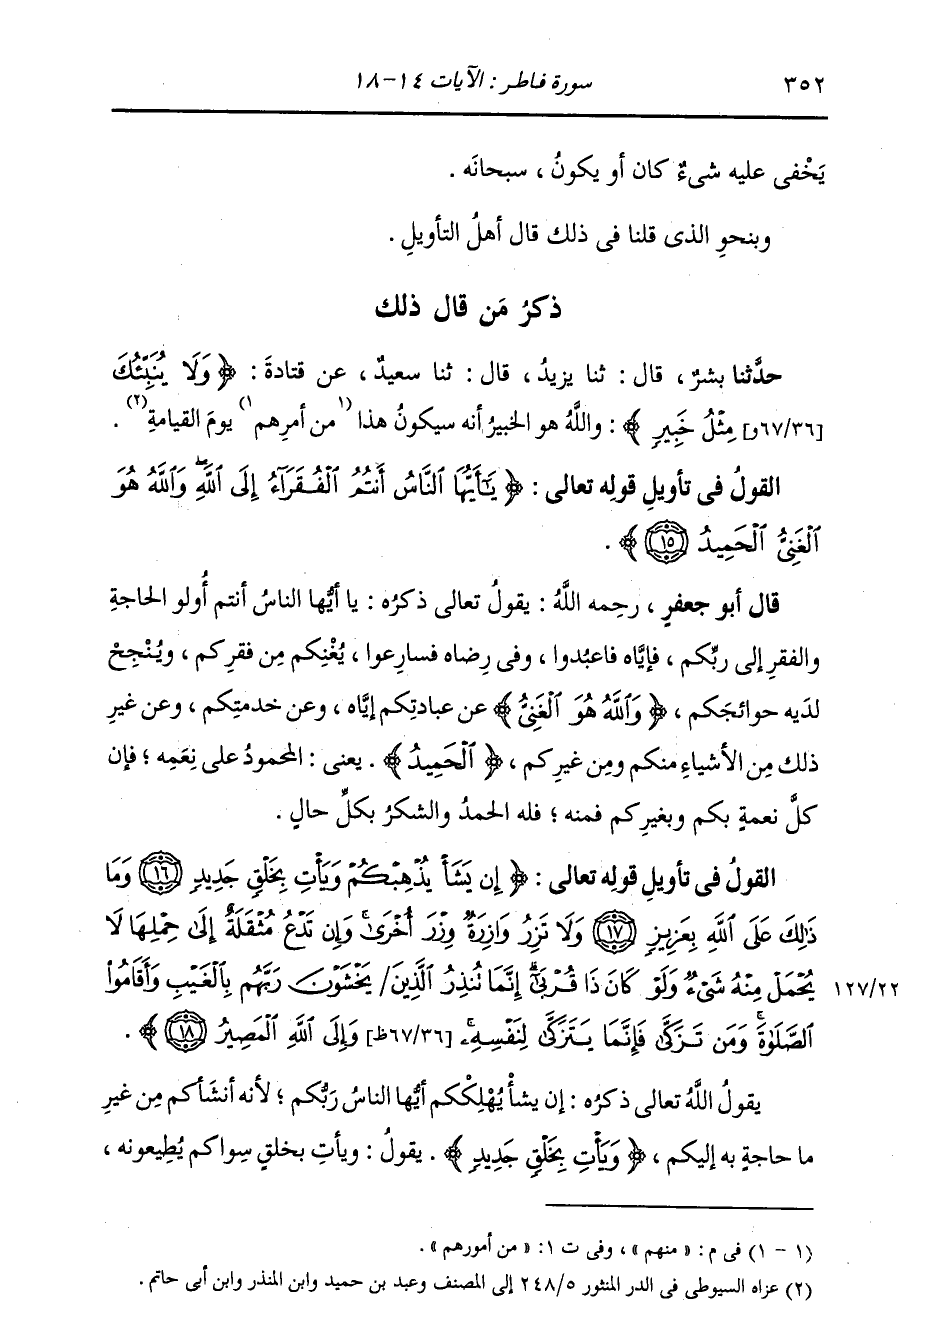 ٣٥٢ سورة فاطر : الآيات ١٤-١٨
يَخْفى عليه شىءٌ كان أو يكونُ ، سبحانَه .
وبنحوِ الذى قلنا فى ذلك قال أهلُ التأويلِ .
ذكرُ مَن قال ذلك
حدَّثنا بشرٌ ، قال : ثنا يزيدُ ، قال : ثنا سعيدٌ ، عن قتادةَ : ﴿ وَلَا يُنَبِّئُكَ
[٦٧/٣٦و] مِثْلُ خَبِيرٍ ﴾ : واللَّهُ هو الخبيرُ أنه سيكونُ هذا (١من أمرِهم١) يومَ القيامةِ(٢) .
القولُ فى تأويلِ قولِه تعالى : ﴿ يَٰٓأَيُّهَا ٱلنَّاسُ أَنتُمُ ٱلْفُقَرَآءُ إِلَى ٱللَّهِۖ وَٱللَّهُ هُوَ
ٱلْغَنِىُّ ٱلْحَمِيدُ ١٥ ﴾ .
قال أبو جعفرٍ ، رحِمه اللَّهُ : يقولُ تعالى ذكرُه : يا أيُّها الناسُ أنتم أُولو الحاجةِ
والفقرِ إلى ربِّكم ، فإيَّاه فاعبُدوا ، وفى رِضاه فسارِعوا ، يُغْنِكم مِن فقرِكم ، ويُنْجِحْ
لدَيه حوائجَكم ، ﴿ وَٱللَّهُ هُوَ ٱلْغَنِىُّ ﴾ عن عبادتِكم إيَّاه ، وعن خدمتِكم ، وعن غيرِ
ذلك مِن الأشياءِ منكم ومِن غيرِكم ، ﴿ ٱلْحَمِيدُ ﴾ . يعنى : المحمودُ على نِعَمِه ؛ فإن
كلَّ نعمةٍ بكم وبغيرِكم فمنه ؛ فله الحمدُ والشكرُ بكلِّ حالٍ .
القولُ فى تأويلِ قولِه تعالى : ﴿ إِن يَشَأْ يُذْهِبْكُمْ وَيَأْتِ بِخَلْقٍ جَدِيدٍ ١٦ وَمَا
ذَٰلِكَ عَلَى ٱللَّهِ بِعَزِيزٍ ١٧ وَلَا تَزِرُ وَازِرَةٌ وِزْرَ أُخْرَىٰۚ وَإِن تَدْعُ مُثْقَلَةٌ إِلَىٰ حِمْلِهَا لَا
يُحْمَلْ مِنْهُ شَىْءٌ وَلَوْ كَانَ ذَا قُرْبَىٰٓۗ إِنَّمَا تُنذِرُ ٱلَّذِينَ/ يَخْشَوْنَ رَبَّهُم بِٱلْغَيْبِ وَأَقَامُوا۟ ١٢٧/٢٢
ٱلصَّلَوٰةَۚ وَمَن تَزَكَّىٰ فَإِنَّمَا يَتَزَكَّىٰ لِنَفْسِهِۦۚ [٦٧/٣٦ظ] وَإِلَى ٱللَّهِ ٱلْمَصِيرُ ١٨ ﴾ .
يقولُ اللَّهُ تعالى ذكرُه : إن يشأْ يُهْلِكْكم أيُّها الناسُ رَبُّكم ؛ لأنه أنشَأكم مِن غيرِ
ما حاجةٍ به إليكم ، ﴿ وَيَأْتِ بِخَلْقٍ جَدِيدٍ ﴾ . يقولُ : ويأتِ بخلقٍ سِواكم يُطِيعونه ،
(١ - ١) فى م : « منهم » ، وفى ت ١ : « من أمورهم » .
(٢) عزاه السيوطى فى الدر المنثور ٢٤٨/٥ إلى المصنف وعبد بن حميد وابن المنذر وابن أبى حاتم .